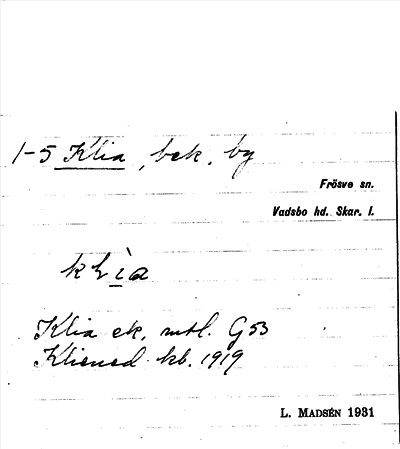 1-5 Klia, bek, by
Frösve sn.
Vadsbo hd. Skar. l.
kLìa
Klia ek. mtl. G53
Kliened kb. 1919
L. MADSÉN 1931